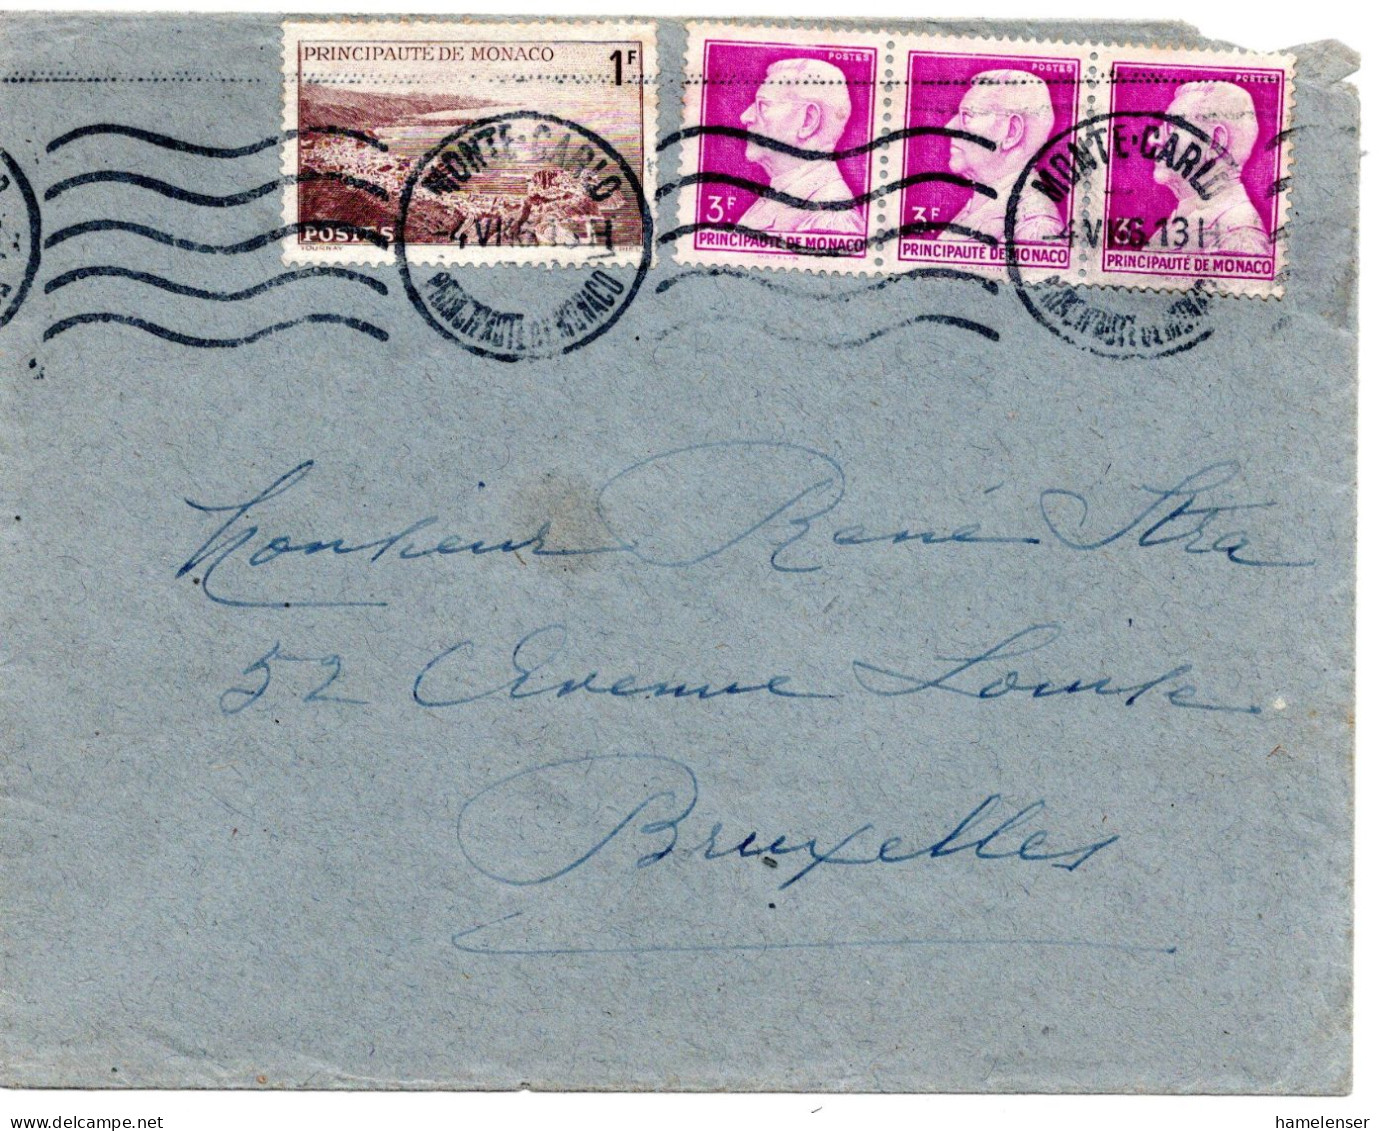 PRINCIPAUTÉ DE MONACO 1F
POSTES
TOURNAY
POSTES
3F
PRINCIPAUTÉ DE MONACO
MAZELIN
POSTES
3F
PRINCIPAUTÉ DE MONACO
MAZELIN
POSTES
3F
PRINCIPAUTÉ DE MONACO
MONTE-CARLO
-4 VI 46 13 H
PRINCIPAUTÉ DE MONACO
MONTE-CARLO
-4 VI 46 13 H
PRINCIPAUTÉ DE MONACO
Monsieur René Stra
52 Avenue Louise
Bruxelles
hamelenser